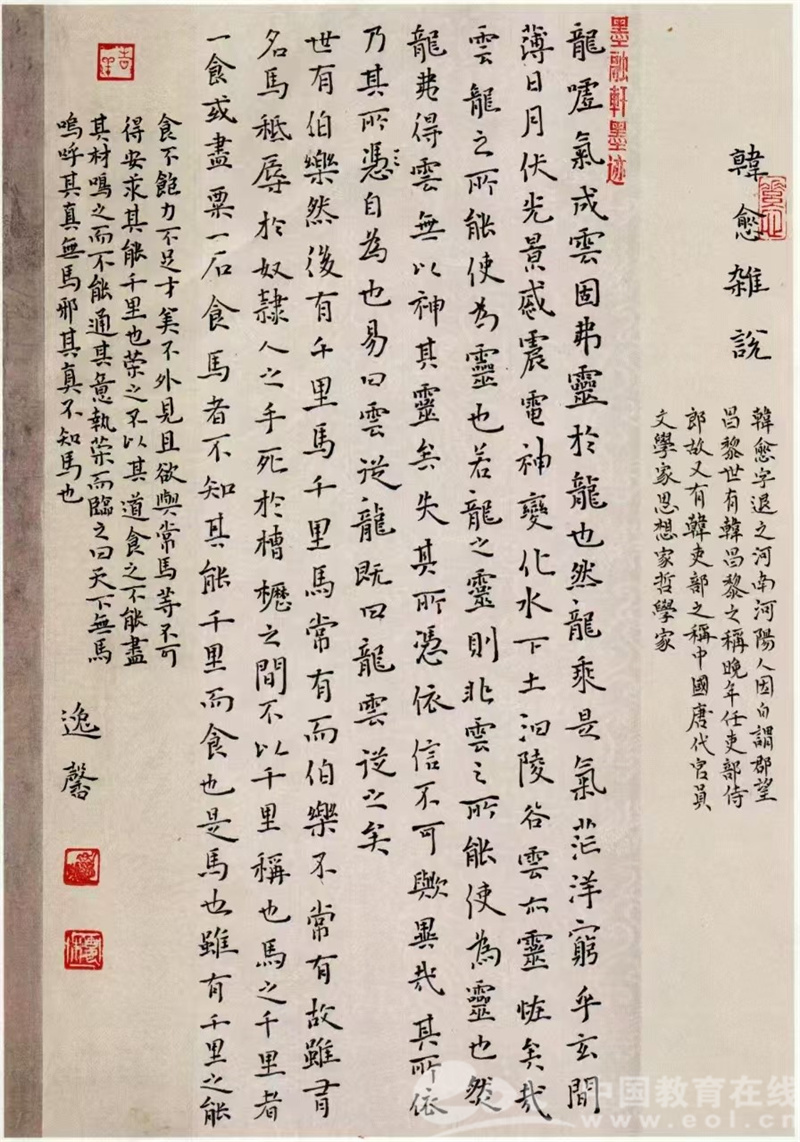 韓愈雜說
韓愈字退之河南河陽人因自謂郡望
昌黎世有韓昌黎之稱晚年任吏部侍
郎故又有韓吏部之稱中國唐代官員
文學家思想家哲學家
墨融軒墨迹
龍噓氣成雲固弗靈於龍也然龍乘是氣茫洋窮乎玄間
薄日月伏光景感震電神變化水下土汩陵谷雲亦靈怪矣哉
雲龍之所能使為靈也若龍之靈則非雲之所能使為靈也然
龍弗得雲無以神其靈矣失其所憑依信不可歟異哉其所依
乃其所憑自為也易曰雲從龍既曰龍雲從之矣
世有伯樂然後有千里馬千里馬常有而伯樂不常有故雖有
名馬秖辱於奴隸人之手死於槽櫪之間不以千里稱也馬之千里者
一食或盡粟一石食馬者不知其能千里而食也是馬也雖有千里之能
食不飽力不足才美不外見且欲與常馬等不可
得安求其能千里也策之不以其道食之不能盡
其材鳴之而不能通其意執策而臨之曰天下無馬
嗚呼其真無馬邪其真不知馬也
逸馨
中国教育在线
www.eol.cn